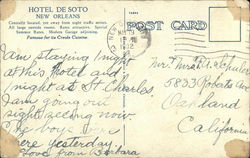 HOTEL DE SOTO
NEW ORLEANS
Centrally located, yet away from night traffic noises.
All large outside rooms. Rates attractive. Special
Summer Rates. Modern Garage adjoining.
Famous for its Creole Cuisine
POST CARD
I am staying tonight
at this Hotel and
night at St Charles,
I am going out
sight seeing now.
The boys were
here yesterday.
Love from Barbara
Mr & Mrs
5833
Oakland
California